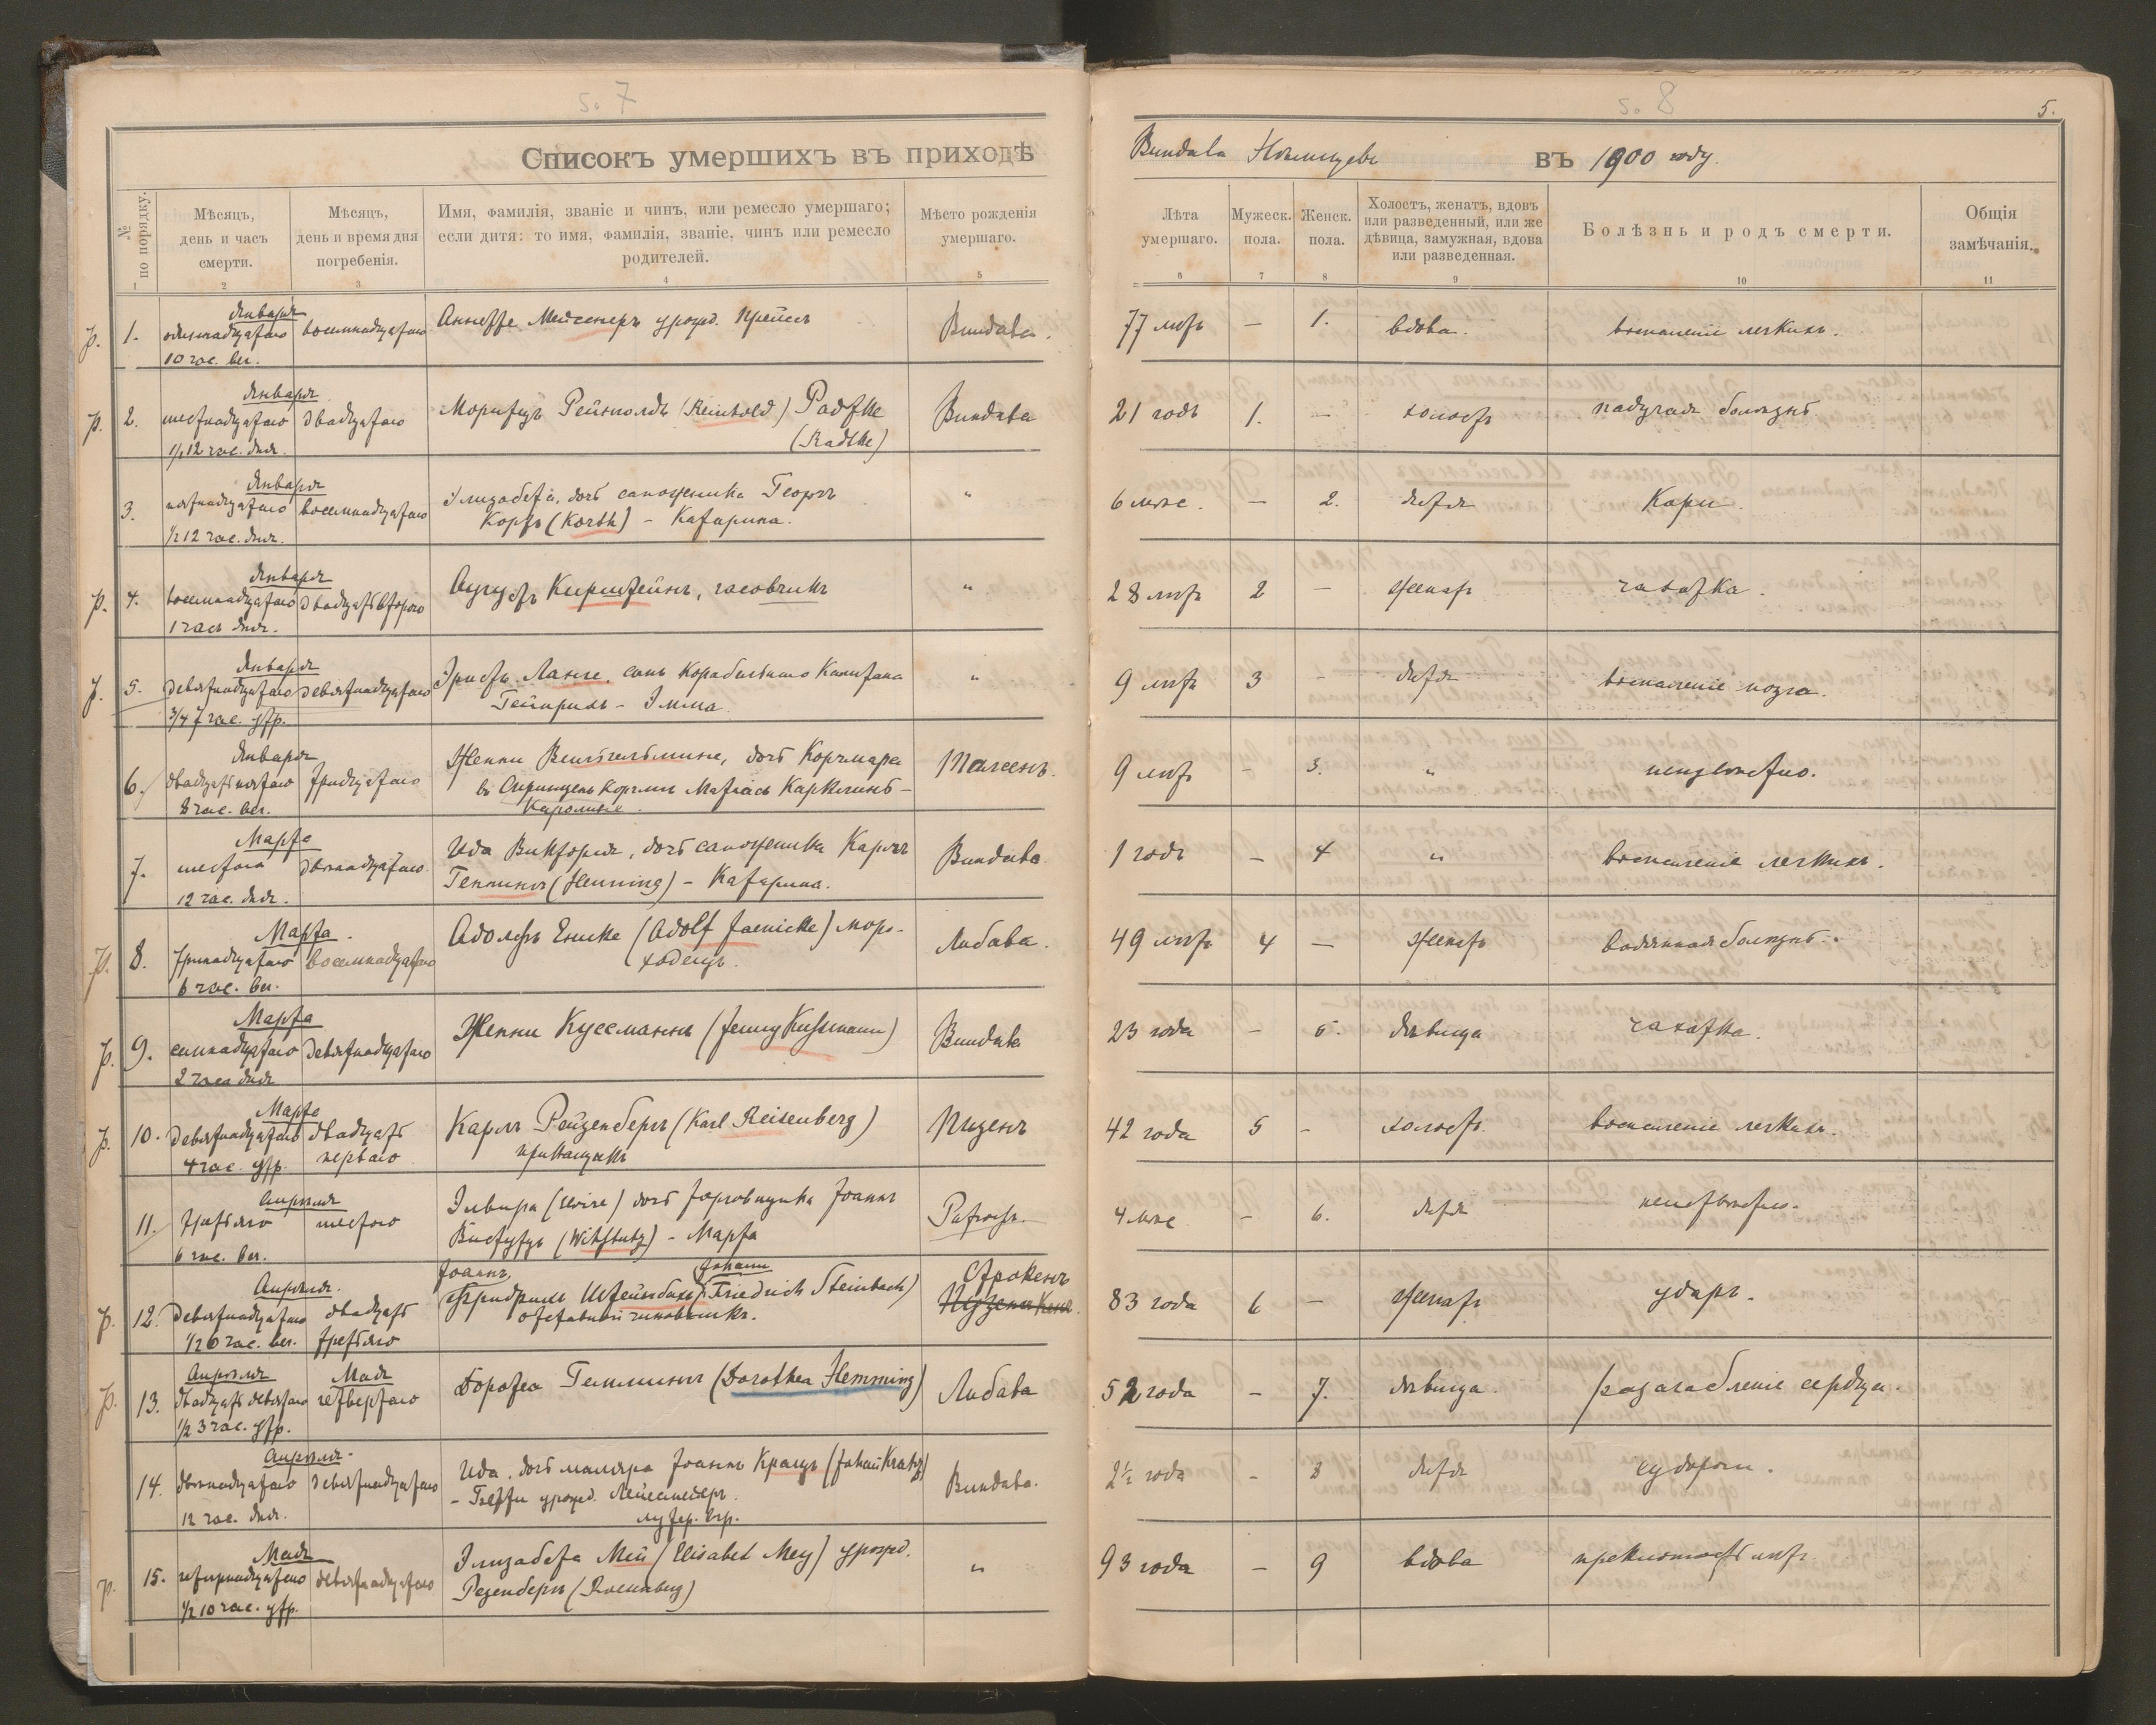 s. 7
s. 8
5.
Списокъ умершихъ въ приходѣ
Виндава
въ 1900 году.
№ по порядку.
Мѣсяцъ,
день и часъ
смерти.
Мѣсяцъ,
день и время дня
погребенія.
Имя, фамилія, званіе и чинъ, или ремесло умершаго;
если дитя: то имя, фамилія, званіе, чинъ или ремесло
родителей.
Мѣсто рожденія
умершаго.
Лѣта
умершаго.
Мужеск.
пола.
Женск.
пола.
Холостъ, женатъ, вдовъ
или разведенный, или же
дѣвица, замужная, вдова
или разведенная.
Болѣзнь и родъ смерти.
Общія
замѣчанія.
1 2 3 4 5 6 7 8 9 10 11
Января
р. 1. одиннадцатаго восемнадцатаго Аннетте Мейсснеръ урожд. Виндава. 77 лѣтъ — 1. вдова. воспаленіе легкихъ.
10 час. веч.
Января
р. 2. шестнадцатаго двадцатаго Морицъ Рейнгольдъ (Reinhold) Радтке Виндава 21 годъ 1. — холостъ падучая болѣзнь.
½12 час. дня. (Radtke)
Января
3. пятнадцатаго восемнадцатаго Элизабета, дочь сапожника Георгъ " 6 мѣс. — 2. дитя Кори.
½12 час. дня. Кортъ (Korth) – Катарина.
Января
р. 4. восемнадцатаго двадцать втораго Аугустъ Кирштейнъ, часовчикъ " 28 лѣтъ 2 — женатъ чахотка.
1 часъ дня.
Января
р. 5. девятнадцатаго девятнадцатаго Эрнстъ Ланге, сынъ корабельнаго капитана " 9 лѣтъ 3 – дитя воспаленіе мозга.
¾7 час. утр. Гейнрихъ – Эмма
Января
6. двадцать пятаго тридцатаго Женни Вильгельмине, дочь корчмаря 9 лѣтъ – 3. " неизвѣстно.
8 час. веч. Матіасъ Карклинь –
Каролине.
Марта
7. шестаго двѣнадцатаго Ида Викторія, дочь сапожника Карлъ Виндава 1 годъ – 4 " воспаленіе легкихъ.
12 час. дня. Геннингъ (Henning) – Катарина.
Марта.
р. 8. тринадцатаго восемнадцатаго Адольфъ Енике (Adolf Jaenicke) море- Либава. 49 лѣтъ 4 — женатъ водянная болѣзнь.
6 час. веч. ходецъ.
Марта
р. 9. семнадцатаго девятнадцатаго Женни Куссманнъ (Jenny Kussmann) Виндава 23 года – 5. дѣвица чахотка.
2 часа дня
Марта
р. 10. девятнадцатаго двадцать Карлъ Рейзенбергъ (Karl Reisenberg) 42 года 5 – холостъ. воспаленіе легкихъ.
4 час. утр. перваго прикащикъ
Апрѣля
11. третьяго шестаго Эльвира (Elvire) дочь торговщика Іоаннъ 4 мѣс – 6. дитя неизвѣстно.
6 час. веч. Витштутцъ (Wittstutz) – Марта
Апрѣля. Іоаннъ Johann
р. 12. девятнадцатаго двадцать Фридрихъ Штейнбахъ (Friedrich Steinbach) 83 года 6 — женатъ ударъ.
½6 час. веч. третьяго отставной чиновникъ.
Апрѣля Мая
р. 13. двадцать девятаго четвертаго Доротеа Геммингъ (Dorothea Hemming) Либава 52 года – 7. дѣвица. разслабленіе сердца.
½3 час. утр.
Апрѣля
14. двѣнадцатаго девятнадцатаго Ида, дочь маляра Іоаннъ Крацъ (Johann Kratz) Виндава. 2½ года – 8 дитя судороги.
12 час. дня. урожд.
лутер. вѣр.
Мая
р. 15. четырнадцатаго девятнадцатаго Элизабета Мей (Elisabet Mey) урожд. " 93 года – 9 вдова преклонность лѣтъ.
½10 час. утр. Розенбергъ (Rosenberg)